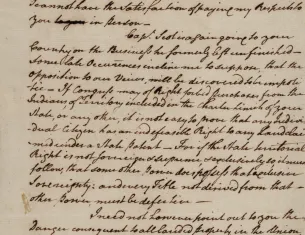 I cannot have the Satisfaction of paying my Respects to
you in person —
Capt. Scot is again going to your
Country on the Business he formerly left unfinished —
Some late Occurences incline me to suppose, that the
opposition to our Views, will be discovered to be impolitic
— If Congress may of Right forbid purchases from the
Indians of Territory included in the Charter limits of your
State, or any other, it is not easy to prove that any Individual
Citizen has an indefeasible Right to any Land claimed
under a State Patent — For if the State territorial
Right is not sovereign & supreme, & exclusively so, it must
follow, that some other Power does possess that exclusive
Sovereignty; and every Title not derived from that
other Power must be defective —
I need not however point out to you the
danger consequent to all landed property in the Union